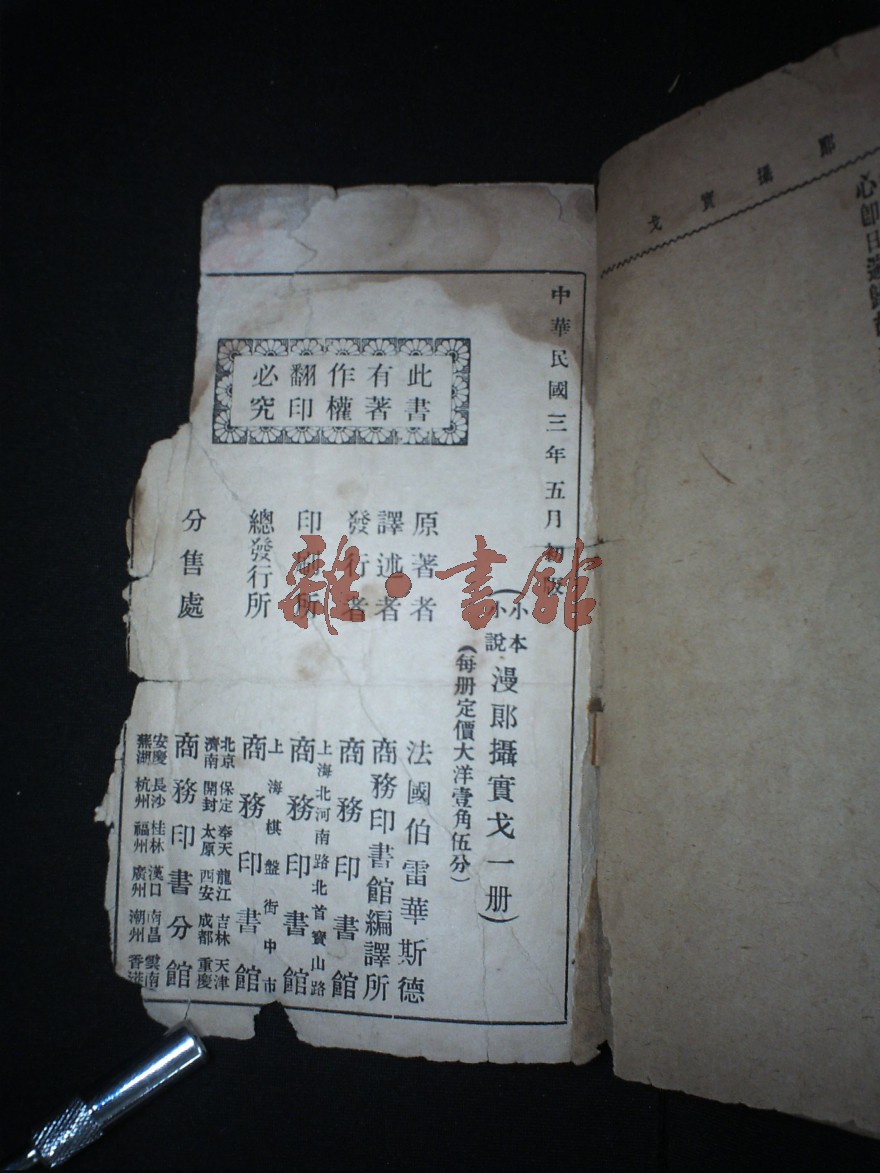 郞攝實戈
中華民國三年五月初版
(小本小說漫郞攝實戈一册)
(每册定價大洋壹角伍分)
此書有著作權翻印必究
原著者 法國伯雷華斯德
譯述者 商務印書館編譯所
發行者 商務印書館
上海北河南路北首寶山路
印刷所 商務印書館
上海棋盤街中市
總發行所 商務印書館
分售處 商務印書分館
北京 保定 奉天 龍江 吉林 天津
濟南 開封 太原 西安 成都 重慶
安慶 長沙 桂林 漢口 南昌 雲南
蕪湖 杭州 福州 廣州 潮州 香港
雜·書館